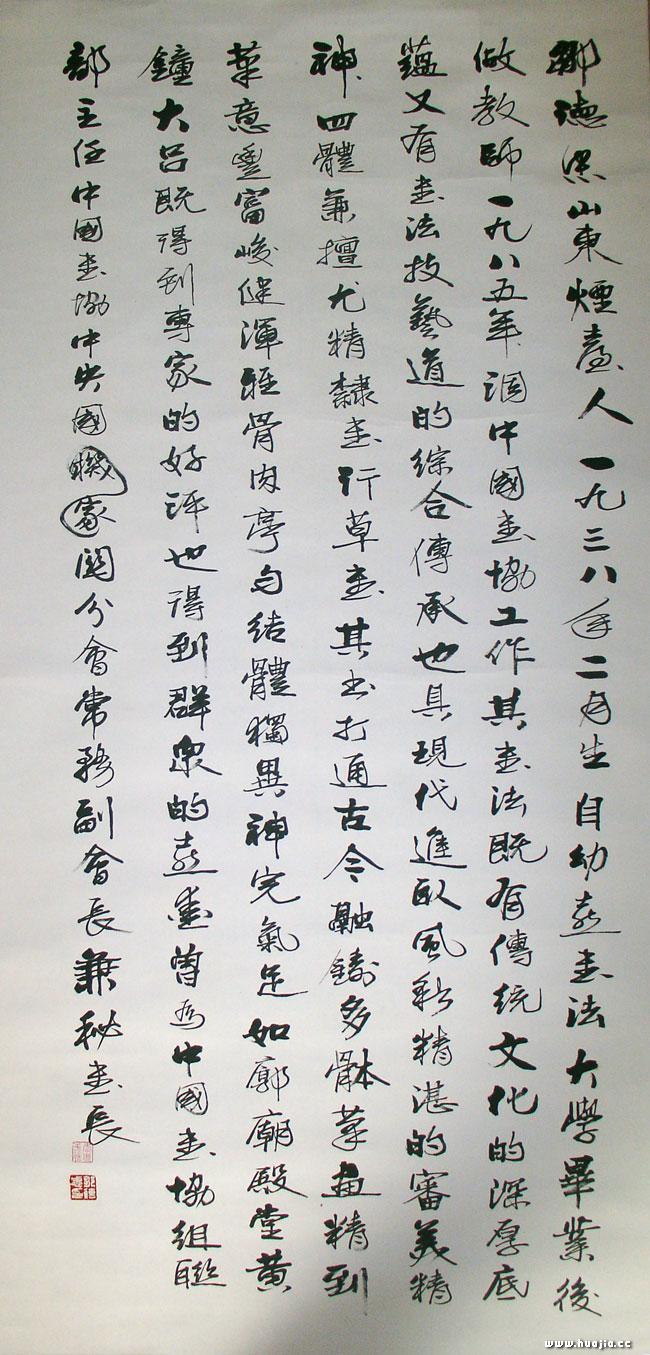 鄒德忠山東煙臺人一九三八年二月生自幼喜書法大學畢業後
做教師一九八五年調中國書協工作其書法既有傳統文化的深厚底
蘊又有書法技藝道的綜合傳承也具現代進取風彩精湛的審美精
神四體兼擅尤精隸書行草書其書打通古今融鑄多体筆畫精到
筆意豐富峻健渾雅骨肉亭勻結體獨異神完氣足如廊廟殿堂黄
鐘大呂既得到專家的好評也得到群衆的喜愛曾為中國書協組聯
部主任中國書協中央國機家関分會常務副會長兼秘書長
www.huajia.cc